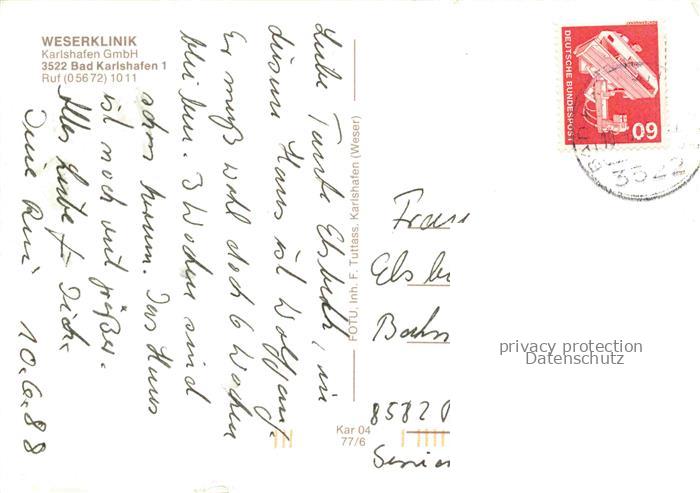 WESERKLINIK
Karlshafen GmbH
3522 Bad Karlshafen 1
Ruf (0 56 72) 10 11
Liebe Tante Elsbeth, in
diesem Haus ist Wolfgang.
Er muß wohl doch 6 Wochen
bleiben. 3 Wochen sind
schon herum. Das Haus
ist noch viel größer.
Alles Liebe f. Dich.
Deine
10.6.88
FOTU, Inh. F. Tuttass, Karlshafen (Weser)
Kar 04
77/6
Frau
Els
Bahn
8582
DEUTSCHE BUNDESPOST
60
3522
privacy protection
Datenschutz